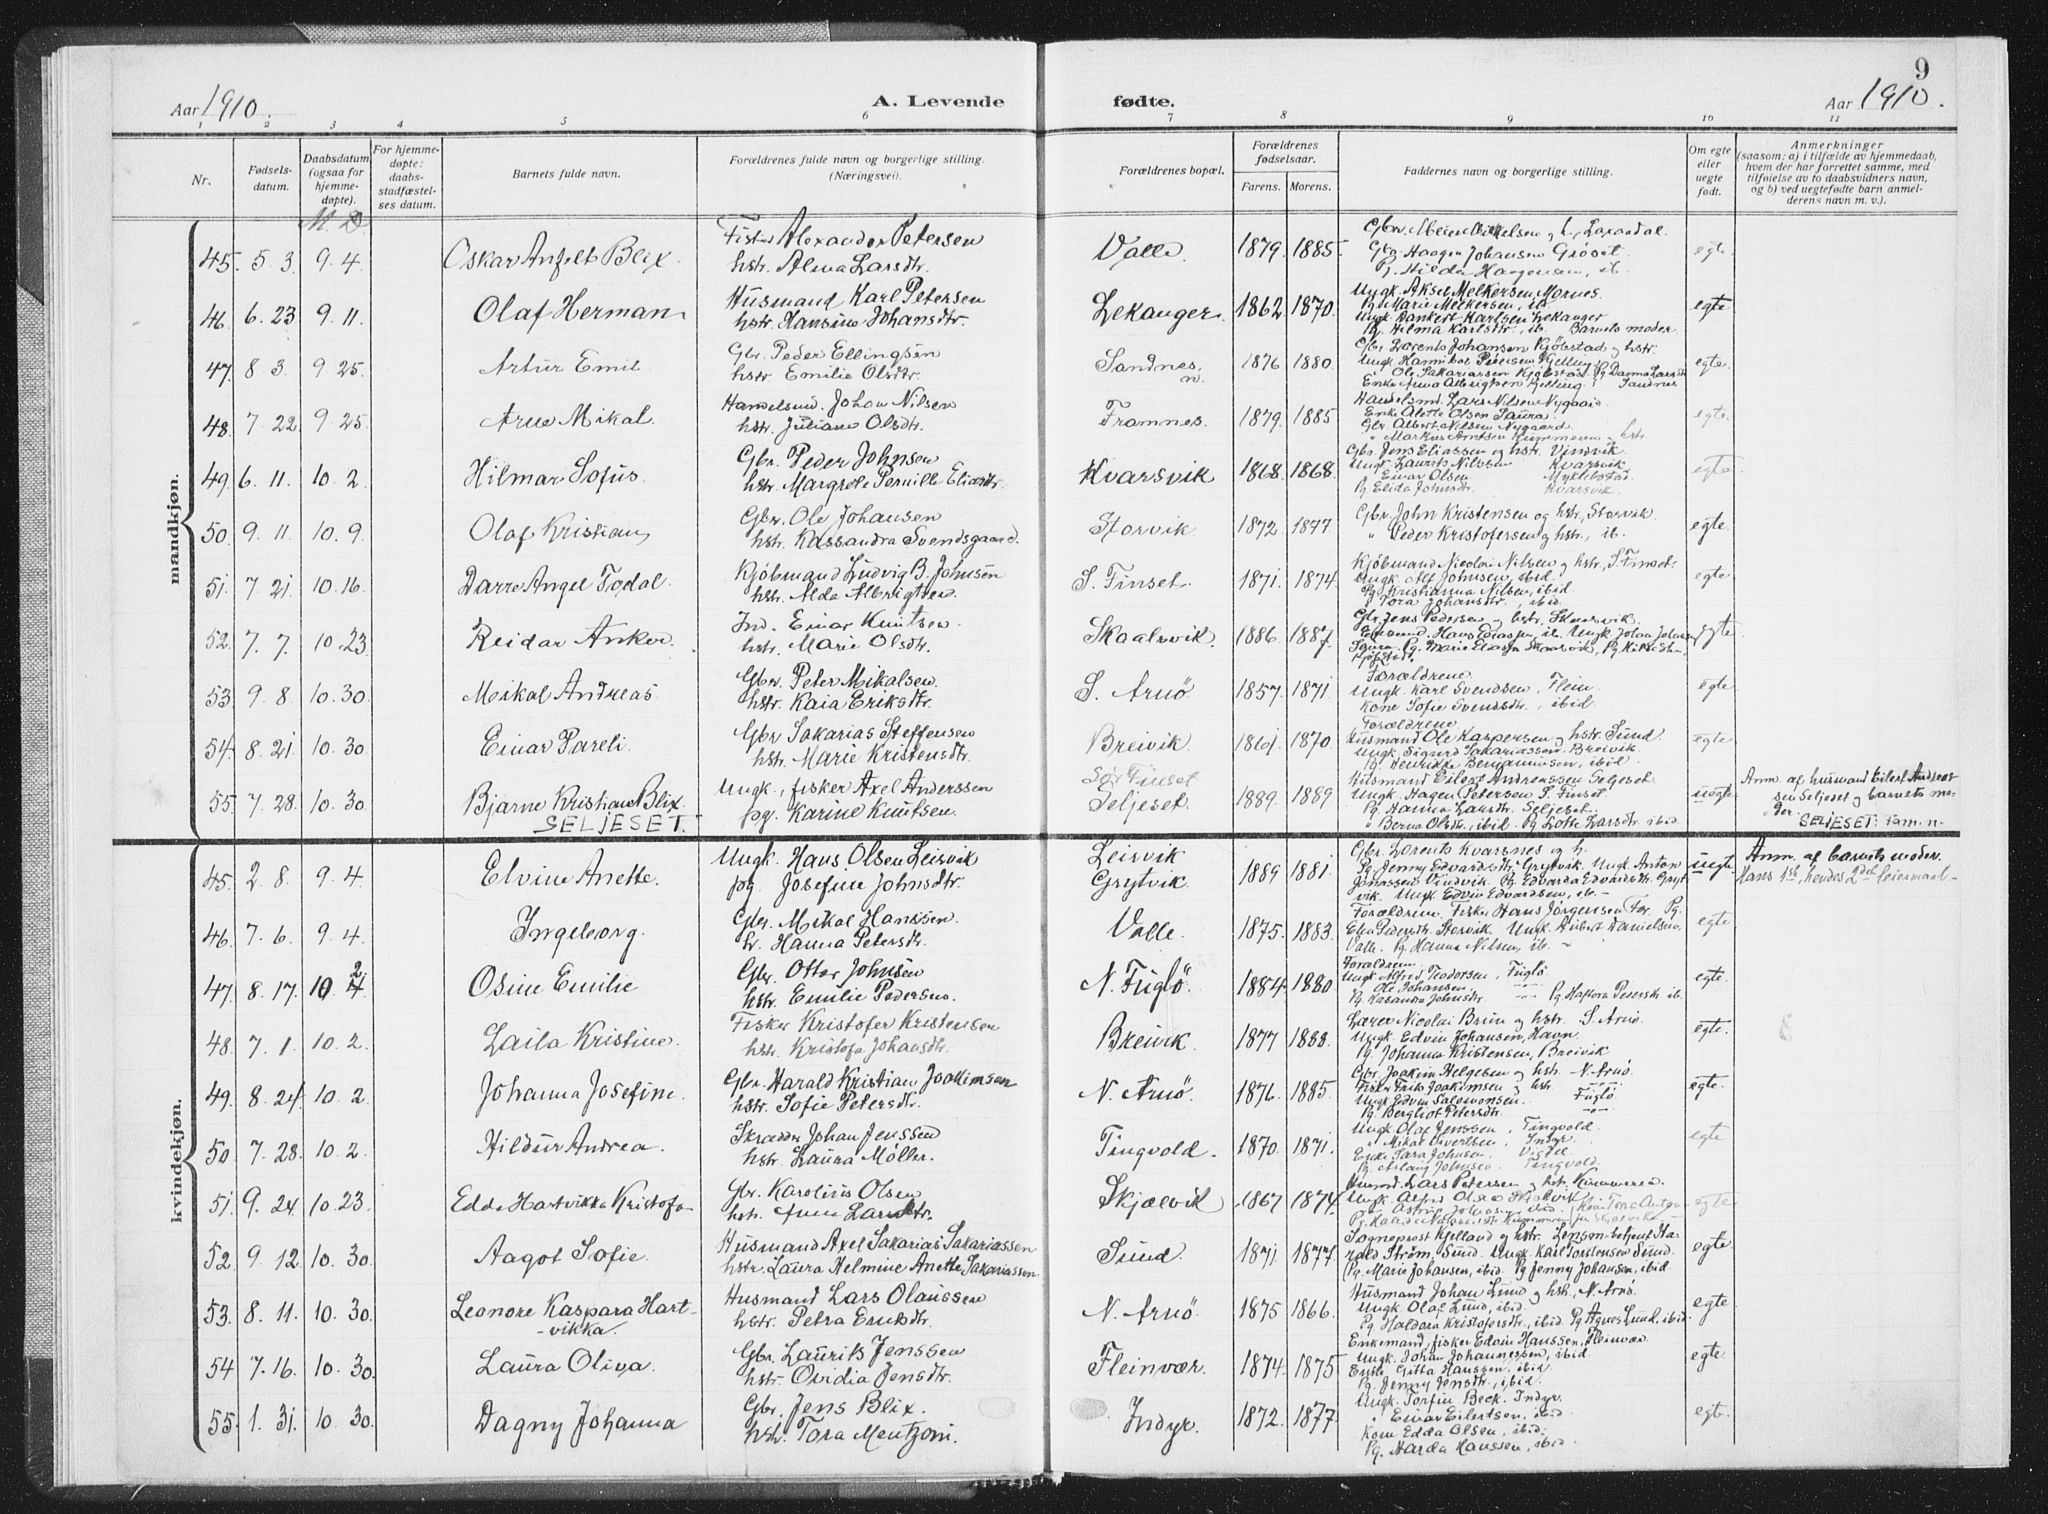 Aar 1910.
A. Levende
fødte.
9
Aar 1910.
1 2 3 4 5 6 7 8 9 10 11
Nr.
Fødsels-
datum.
Daabsdatum
(ogsaa for
hjemme-
døpte).
M. D
For hjemme-
døpte:
daabs-
stadfæstel-
ses datum.
Barnets fulde navn.
Forældrenes fulde navn og borgerlige stilling.
(Næringsvei).
Forældrenes bopæl.
Forældrenes
fødselsaar.
Farens. Morens.
Faddernes navn og borgerlige stilling.
Om egte
eller
uegte
født.
Anmerkninger
(saasom: a) i tilfælde av hjemmedaab,
hvem der har forrettet samme, med
tilføielse av to daabsvidners navn,
og b) ved uegtefødte barn anmel-
derens navn m. v.).
mandkjøn.
45. 5. 3. 9. 4. Oskar Anfelt Blix. Fisker Alexander Petersen
hstr. Alma Larsdtr. Valle 1879. 1885. egte
Gbr. Haagen Johansen Grøset
Pg. Hilda Haagensen, ib.
46. 6. 23 9. 11. Olaf Herman. Husmand Karl Petersen
hstr. Hansine Johansdtr. Lekanger. 1862. 1870. egte
Ungk. Aksel Melkersen, Mornes.
Pg. Marie Melkersen, ib.
Ungk. Dankert Karlsen Lekanger
Pg. Hilma Karlsdtr., ib. Barnets moder.
47. 8. 3. 9 25. Artur Emil Gbr. Peder Ellingsen
hstr. Emilie Olsdtr. Sandnes. 1876 1880. egte.
Gbr. Lorents Johansen Kjøbstad og hstr.
48. 7. 22 9. 25. Arne Mikal. Handelsmd. Johan Nilsen
hstr. Juliane Olsdtr. Framnes. 1879. 1885 egte.
Handelsmd. Lars Nilsen Nygaard.
Enke Alette Olsen Saura.
Gbr. Albert Nilsen Nygaard
49. 6. 11. 10. 2. Hilmar Sofus. Gbr. Peder Johnsen
hstr. Margrete Pernille Eliasdtr. Kvarsvik 1868. 1868. egte
Gbr. Jens Eliassen og hstr. Vindvik.
Ungk. Laurits Nilssen Kvarsvik
" Einar Olsen Myklebostad
Pg. Elida Johnsdtr. Kvarsvik.
50. 9. 11 10. 9. Olaf Kristian Gbr. Ole Johansen
hstr. Kassandra Svendsgaard. Storvik 1872 1877 egte
Gbr. John Kristensen og hstr., Storvik.
" Peder Kristofersen og hstr., ib.
51. 7. 21 10. 16. Darre Angel Todal. Kjøbmand Ludvig B. Johnsen
hstr. Alda Albrigtsen. S. Finset. 1871. 1874 egte
Kjøbmand Nicolai Nilsen og hstr., S. Finset.
Ungk. Alf Johnsen, ibid.
Pg. Kristianna Nilsen, ibid
" Tora Johansdtr., ibid.
52. 7. 7. 10. 23. Reidar Anker. Ind. Einar Knutsen
hstr. Marie Olsdtr. Skaalsvik. 1886. 1887. egte
53. 9. 8. 10. 30. Mikal Andreas. Gbr. Peter Mikalsen
hstr. Kaia Eriksdtr. S. Arnø 1857. 1871 egte
Forældrene
Ungk. Karl Svendsen, Flein.
Kone Sofie Svendsdtr., ibid
54. 8. 21. 10. 30. Einar Pareli. Gbr Sakarias Steffensen
hstr. Marie Kristensdtr. Breivik. 1861. 1870. egte.
Forældrene
Husmand Ole Kaspersen og hstr. Sund.
Ungk. Sigurd Sakariassen. Breivik.
Pg. Henrikke Benjaminsen, ibid.
55. 7. 28. 10. 30. Bjarne Kristian Blix.
SELJESET. Ungk., fisker Axel Anderssen
pg. Karine Knutsen. Sør Finset
Seljeset. 1889. 1889 uegte
Husmand Eilert Andreassen Seljeset
Ungk. Hagen Petersen S. Finset
Pg. Hanna Larsdtr. Seljeset.
" Berna Olsdtr., ibid. Pg Lotte Larsdtr. ibid.
Anm. af husmand Eilert Andreas-
sen Seljeset og barnets mo-
der. SELJESET: Fam. n.
kvindekjøn.
45. 2. 8. 9. 4. Elvine Anette. Ungk. Hans Olsen Leirvik
pg. Josefine Johnsdtr. Leirvik
Grytvik. 1889 1881. uegte
Gbr. Lorents Kvarsnes og h.
Pg. Jenny Edvardsdtr. Grytvik. Ungk Anton
Jonassen Vindvik. Pg. Edvarda Edvardsdtr. Gryt-
vik. Ungk Edvin Edvardsen, ib.
Anm. af barnets moder.
Hans 1ste, hendes 2det leiermaal.
46. 7. 6. 9. 4. Ingeborg. Gbr. Mikal Hanssen.
h. Hanna Petersdtr. Valle. 1875. 1883. egte
Forældrene. Fisker Hans Jørgensen
Valle. Pg Hanna Nilsen, ib.
47. 8. 17. 10 2 Osine Emilie Gbr. Otter Johnsen
hstr. Emilie Pedersen. N. Fuglø. 1884. 1880 egte
Forældrene.
Ungk Alfred Teodorsen, Fuglø
" Ole Johansen,
Pg. Kasandra Johnsdtr.
48. 7. 1. 10. 2. Laila Kristine. Fisker Kristofer Kristensen
hstr. Kristofa Johansdtr. Breivik. 1877 1888. egte.
Lærer Nicolai Brun og hstr. S. Arnø.
Ungk. Edvin Johansen, Havn
Pg. Johanna Kristensen, Breivik
49. 8. 24. 10. 2. Johanna Josefine. Gbr. Harald Kristian Joakimsen
hstr. Sofie Petersdtr. N. Arnø. 1876. 1885. egte.
Gbr. Joakim Helgesen og hstr. N. Arnø.
Fisker Erik Joakimsen og hstr
Ungk Edvin Salomonsen. Fuglø
Pg. Bergliot Petersdtr.
50 7. 28. 10. 2. Hildur Andrea. Skrædder Johan Jenssen
hstr. Laura Møller. Tingvold. 1870. 1871. egte
Ungk Olaf Jenssen, Tingvold.
" Mikal Sivertsen. Indyr.
Enke Sara Johnsen.
Pg. Aslaug Johnsen. Tingvold.
51 9. 24. 10. 23. Edda Hartvikka Kristofa Gbr. Karolius Olsen
hstr. Anna Larsdtr. Skjælvik 1867 1874 egte
52 9. 12. 10. 30. Aagot Sofie. Husmand Axel Sakarias Sakariassen
hstr. Laura Helmine Anette Sakariassen Sund. 1871 1877. egte
Sogneprest Kjelland og hstr. Lensm. betjent Ha-
rald Strøm, Sund. Ungk. Karl Torstensen Sund.
Pg. Marie Johansen, ibid. Pg Jenny Johansen, ibid
53. 8. 11. 10. 30. Leonore Kaspara Hart-
-vikka. Husmand Lars Olaussen
hstr. Petra Eriksdtr. N. Arnø. 1875 1866. egte
Husmand Johan Lund og hstr., N. Arnø.
Ungk Olaf Lund, ibid.
Pg Haldora Kristofersdtr., ibid. Pg Agnes Lund, ibid.
54 7. 16. 10. 30. Laura Oliva. Gbr. Laurits Jenssen
hstr. Ovidia Jensdtr. Fleinvær. 1874 1875 egte
Enkemand, fisker Edvin Hanssen, Fleinvær
Ungk. Johan Johannessen, ibid
Enke Gitta Hanssen, ibid.
Pg. Jenny Jensdtr., ibid.
55. 1. 31. 10. 30. Dagny Johanna Gbr. Jens Blix.
hstr. Tora Mentzoni. Indyr. 1872. 1877. egte.
Ungk. Torfin Beck. Indyr.
" Einar Eilertsen, ibid.
Kone Edda Olsen, ibid.
Pg. Harda Hanssen, ibid.